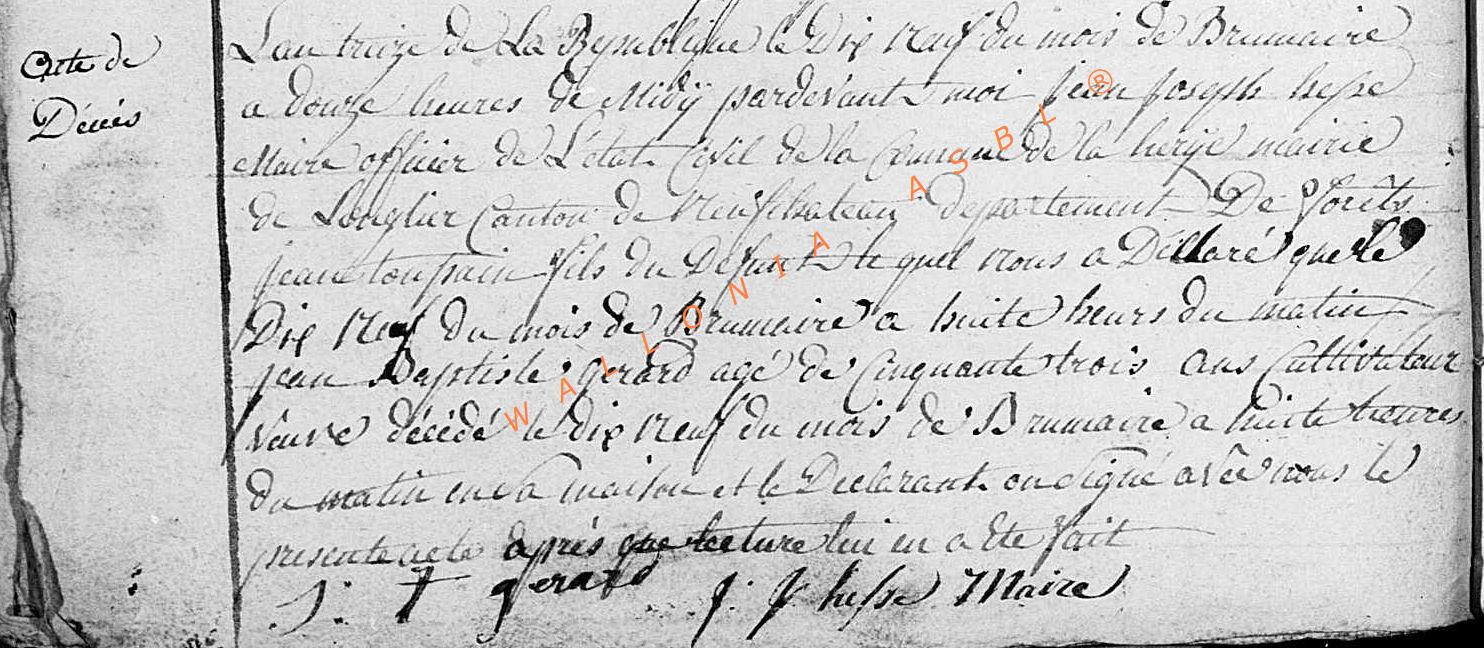 acte de
Décès
L'an treize de la Republique le Dix neuf du mois de Brumaire
a douze heures de Midÿ pardevant moi jean joseph hesse
Maire officier de L'état Civil de la Comune de la herÿe mairie
de Longlier Canton de neufchateau departement De forêts
jean toussain fils du Defunt lequel nous a Déclaré que le
Dix neuf du mois de Brumaire a huite heurs du matin
jean Baptiste gerard agé de Cinquante trois ans Cultivateur
veuve décédé le dix neuf du mois de Brumaire a huite heures
du matin en sa maison et le Declarant on signé avec nous le
presente acte après que lecture lui en a Ete fait
J. T gerard J. J hesse Maire
WALLONIA ASBL ®